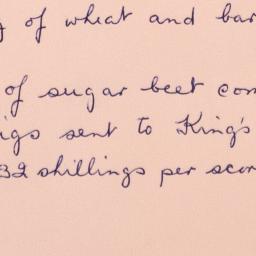 of wheat and bar
of sugar beet com
igs sent to King's
32 shillings per scor